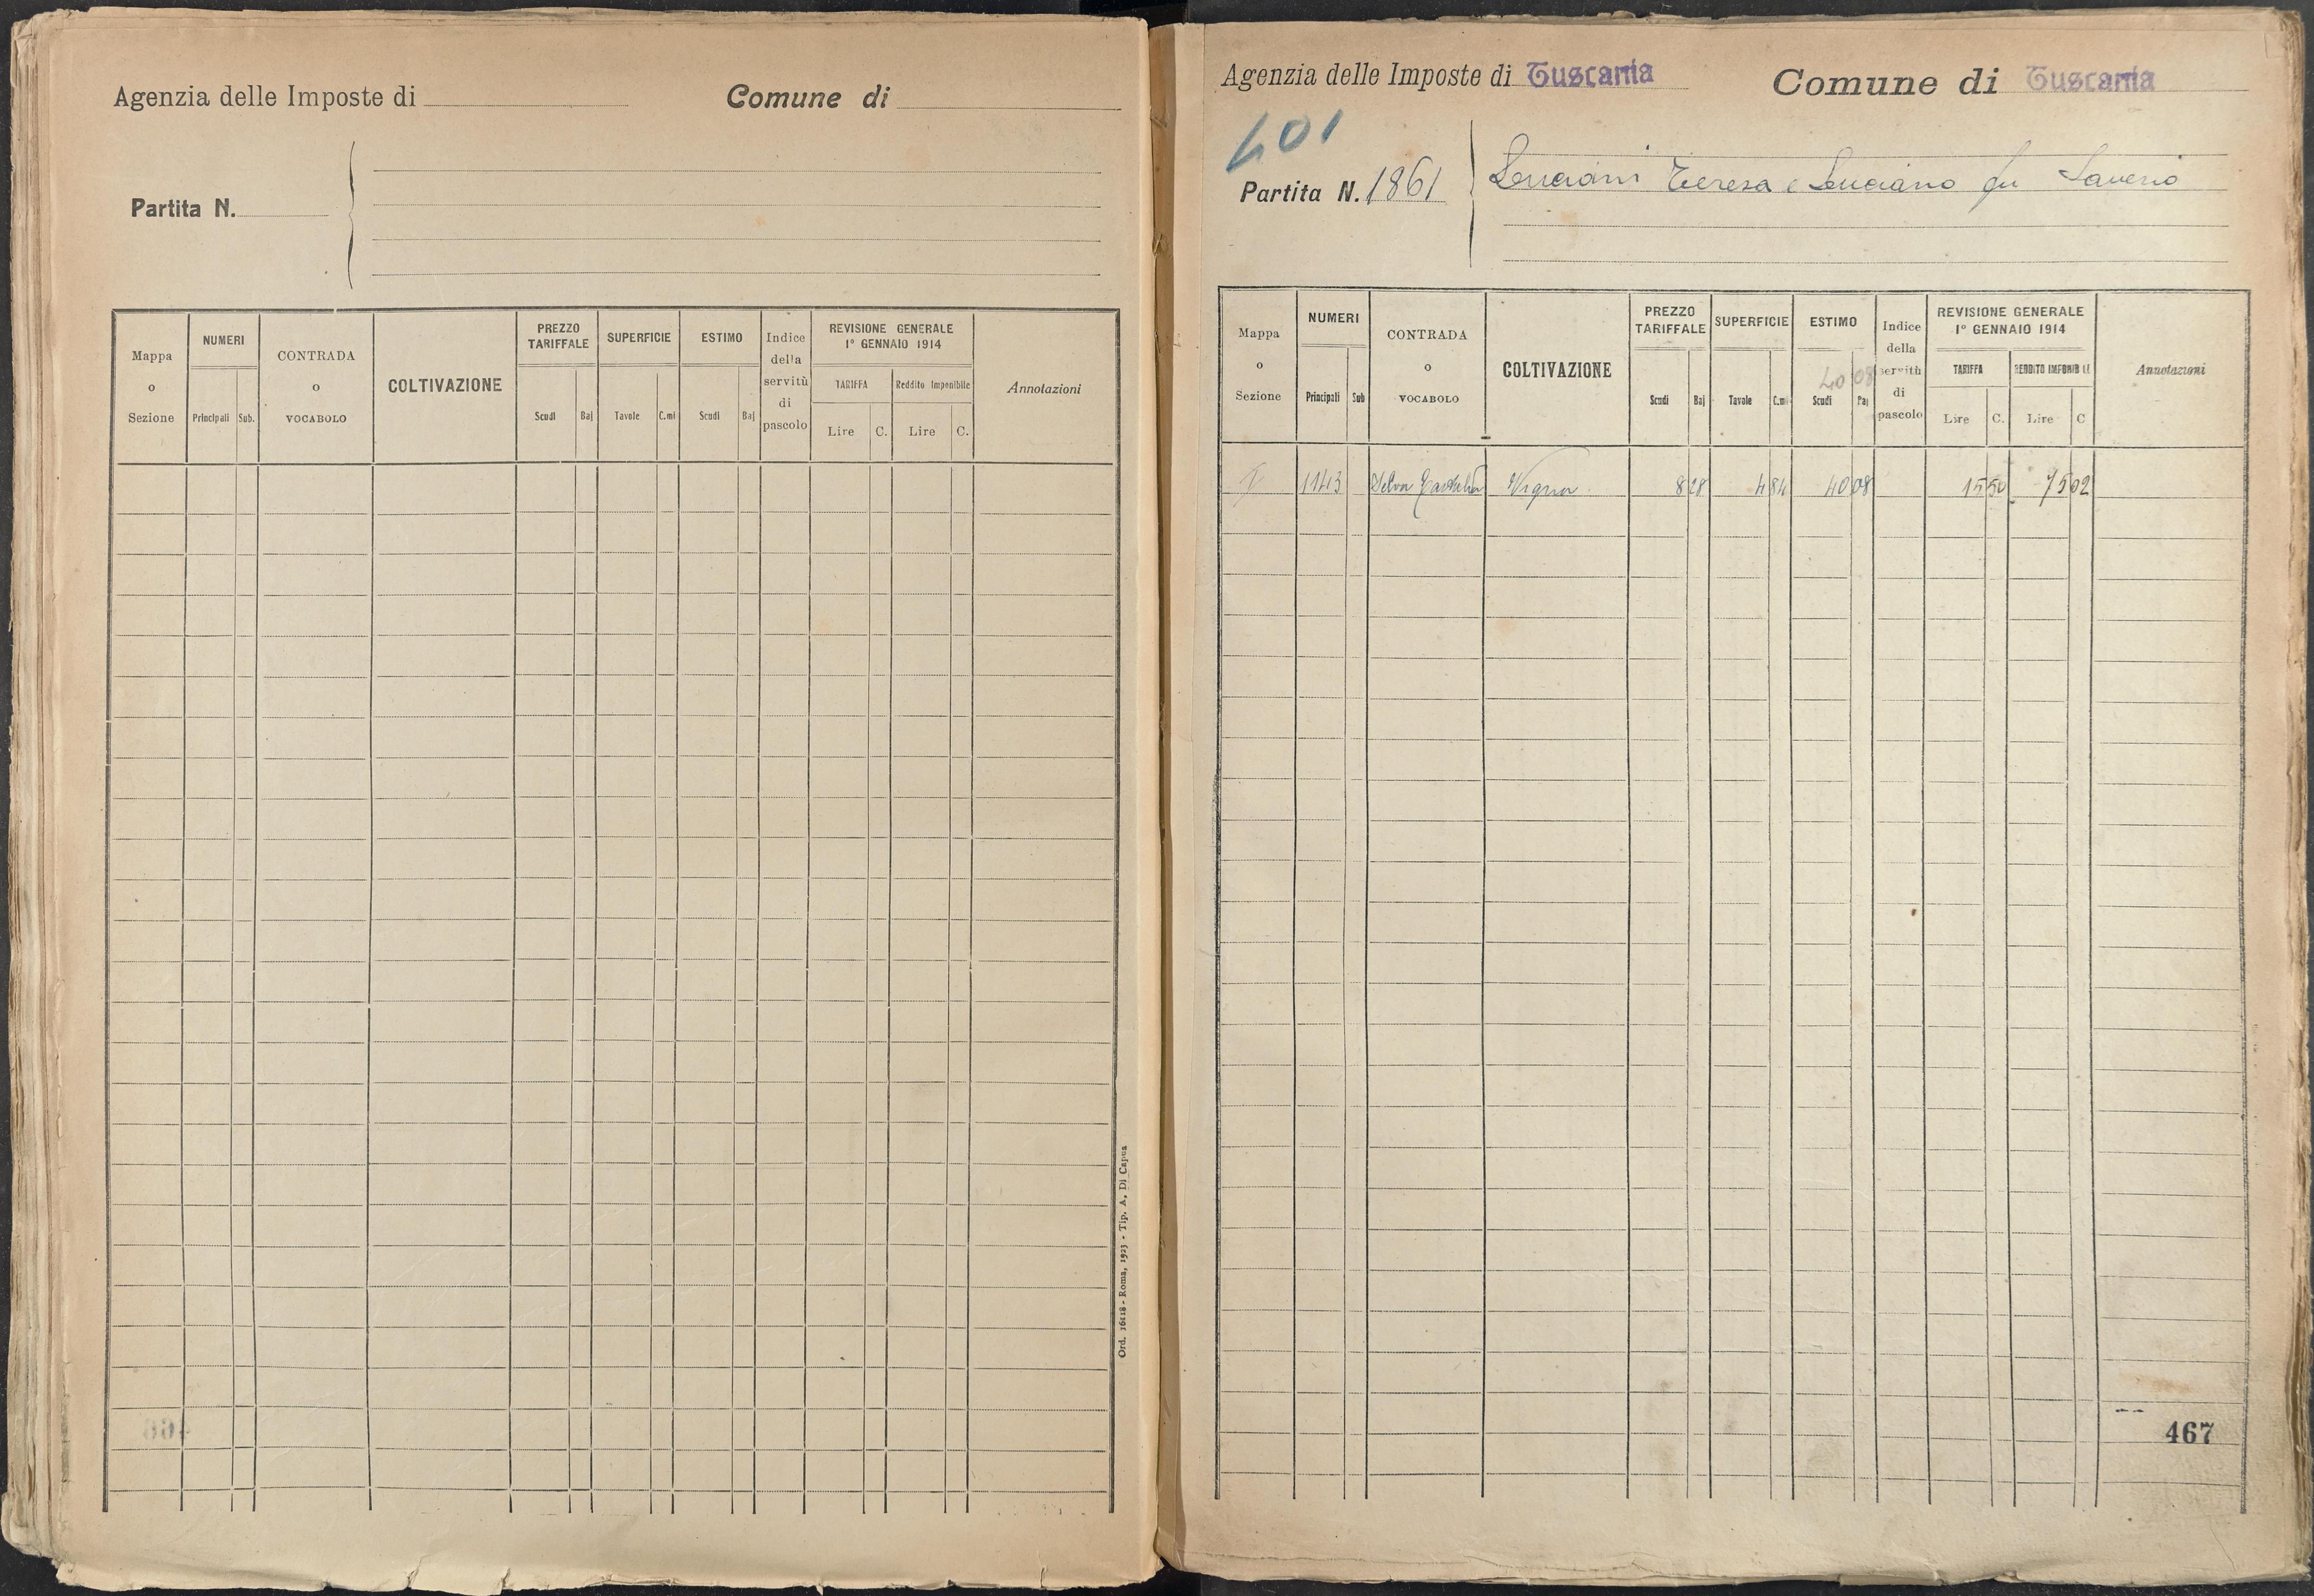 Agenzia delle Imposte di
Comune di
Partita N.
Mappa o Sezione
NUMERI
Principali Sub.
CONTRADA o VOCABOLO
COLTIVAZIONE
PREZZO TARIFFALE
Scudi Baj
SUPERFICIE
Tavole C.mi
ESTIMO
Scudi Baj
Indice della servitù di pascolo
REVISIONE GENERALE
1° GENNAIO 1914
TARIFFA
Lire C.
Reddito Imponibile
Lire C.
Annotazioni
Ord. 16118 - Roma, 1923 - Tip. A. Di Capua
Agenzia delle Imposte di Tuscania
Comune di Tuscania
401
Partita N. 1861
Luciani Teresa e Luciano fu Saverio
Mappa o Sezione
NUMERI
Principali Sub
CONTRADA o VOCABOLO
COLTIVAZIONE
PREZZO TARIFFALE
Scudi Baj
SUPERFICIE
Tavole C.mi
ESTIMO
40 08
Scudi Baj
Indice della servitù di pascolo
REVISIONE GENERALE
1° GENNAIO 1914
TARIFFA
Lire C.
REDDITO IMPONIBILE
Lire C
Annotazioni
1143 Selva Vigna 8 28 4 84 40 08 15 50 75 02
467